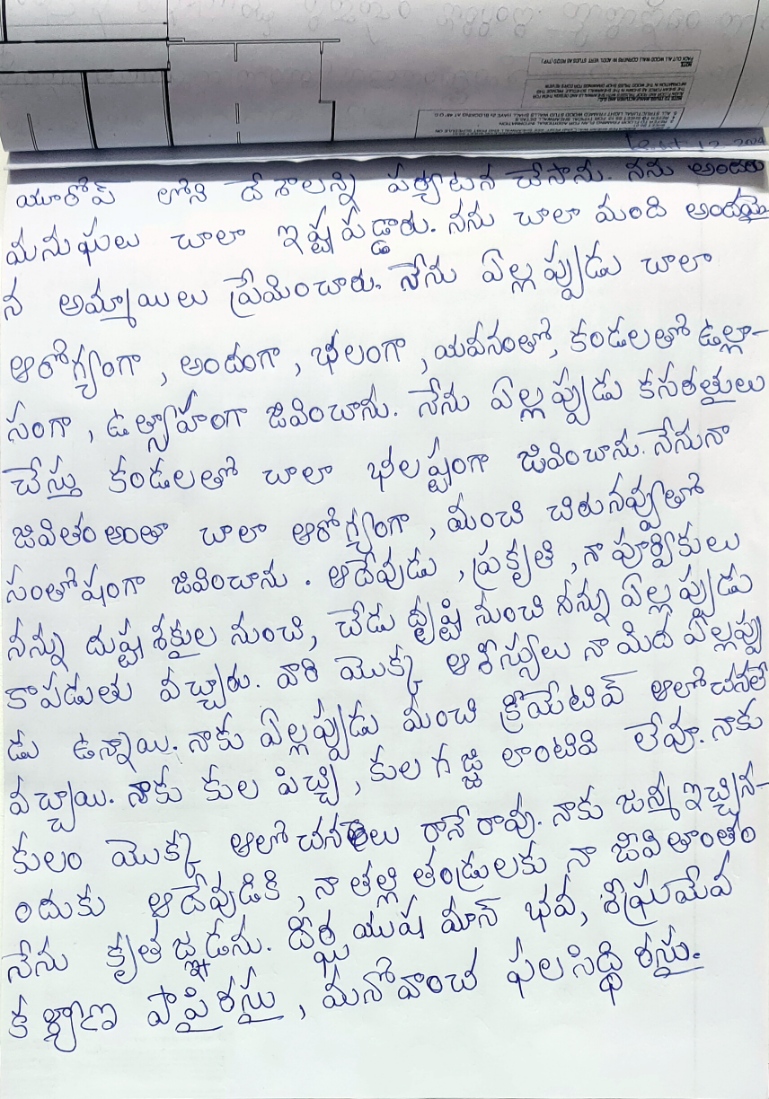 యూరోప్ లోని దేశాలన్ని పర్యాటన చేసాను. నను అందరు
మనుషులు చాలా ఇష్టపడ్డారు. నను చాలా మంది అందమై
న అమ్మాయిలు ప్రేమించారు. నేను ఏల్లప్పుడు చాలా
ఆరోగ్యంగా, అందంగా, భలంగా, యవ్వనంతో, కండలతో ఉల్లా-
సంగా, ఉత్సాహంగా జివించాను. నేను ఏల్లప్పుడు కసరత్తులు
చేస్తు కండలతో చాలా భలిష్టంగా జివించాను. నేను నా
జివితం అంతా చాలా ఆరోగ్యంగా, మంచి చిరునవ్వుతో
సంతోషంగా జివించాను. ఆదేవుడు, ప్రకృతి, నా పూర్వికులు
నన్ను దుష్ట శక్తుల నుంచి, చేడు దృష్టి నుంచి నన్ను ఏల్లప్పుడు
కాపడుతు వచ్చారు. వారి యొక్క ఆశిస్సులు నా మిద ఏల్లప్పు
డు ఉన్నాయి. నాకు ఏల్లప్పుడు మంచి క్రియేటివ్ ఆలోచనలే
వచ్చాయి. నాకు కుల పిచ్చి, కుల గజ్జి లాంటివి లేవు. నాకు
కులం యొక్క ఆలోచనలు రానే రావు. నాకు జన్మ ఇచ్చిన-
ందుకు ఆదేవుడికి, నా తల్లి తండ్రులకు నా జివితాంతం
నేను కృతజ్ఞుడను. దిర్ఘయుష మాన్ భవ, శిఘ్రమేవ
కళ్యాణ ప్రాప్తిరస్తు, మనోవాంచ ఫలసిద్ధి రస్తు.